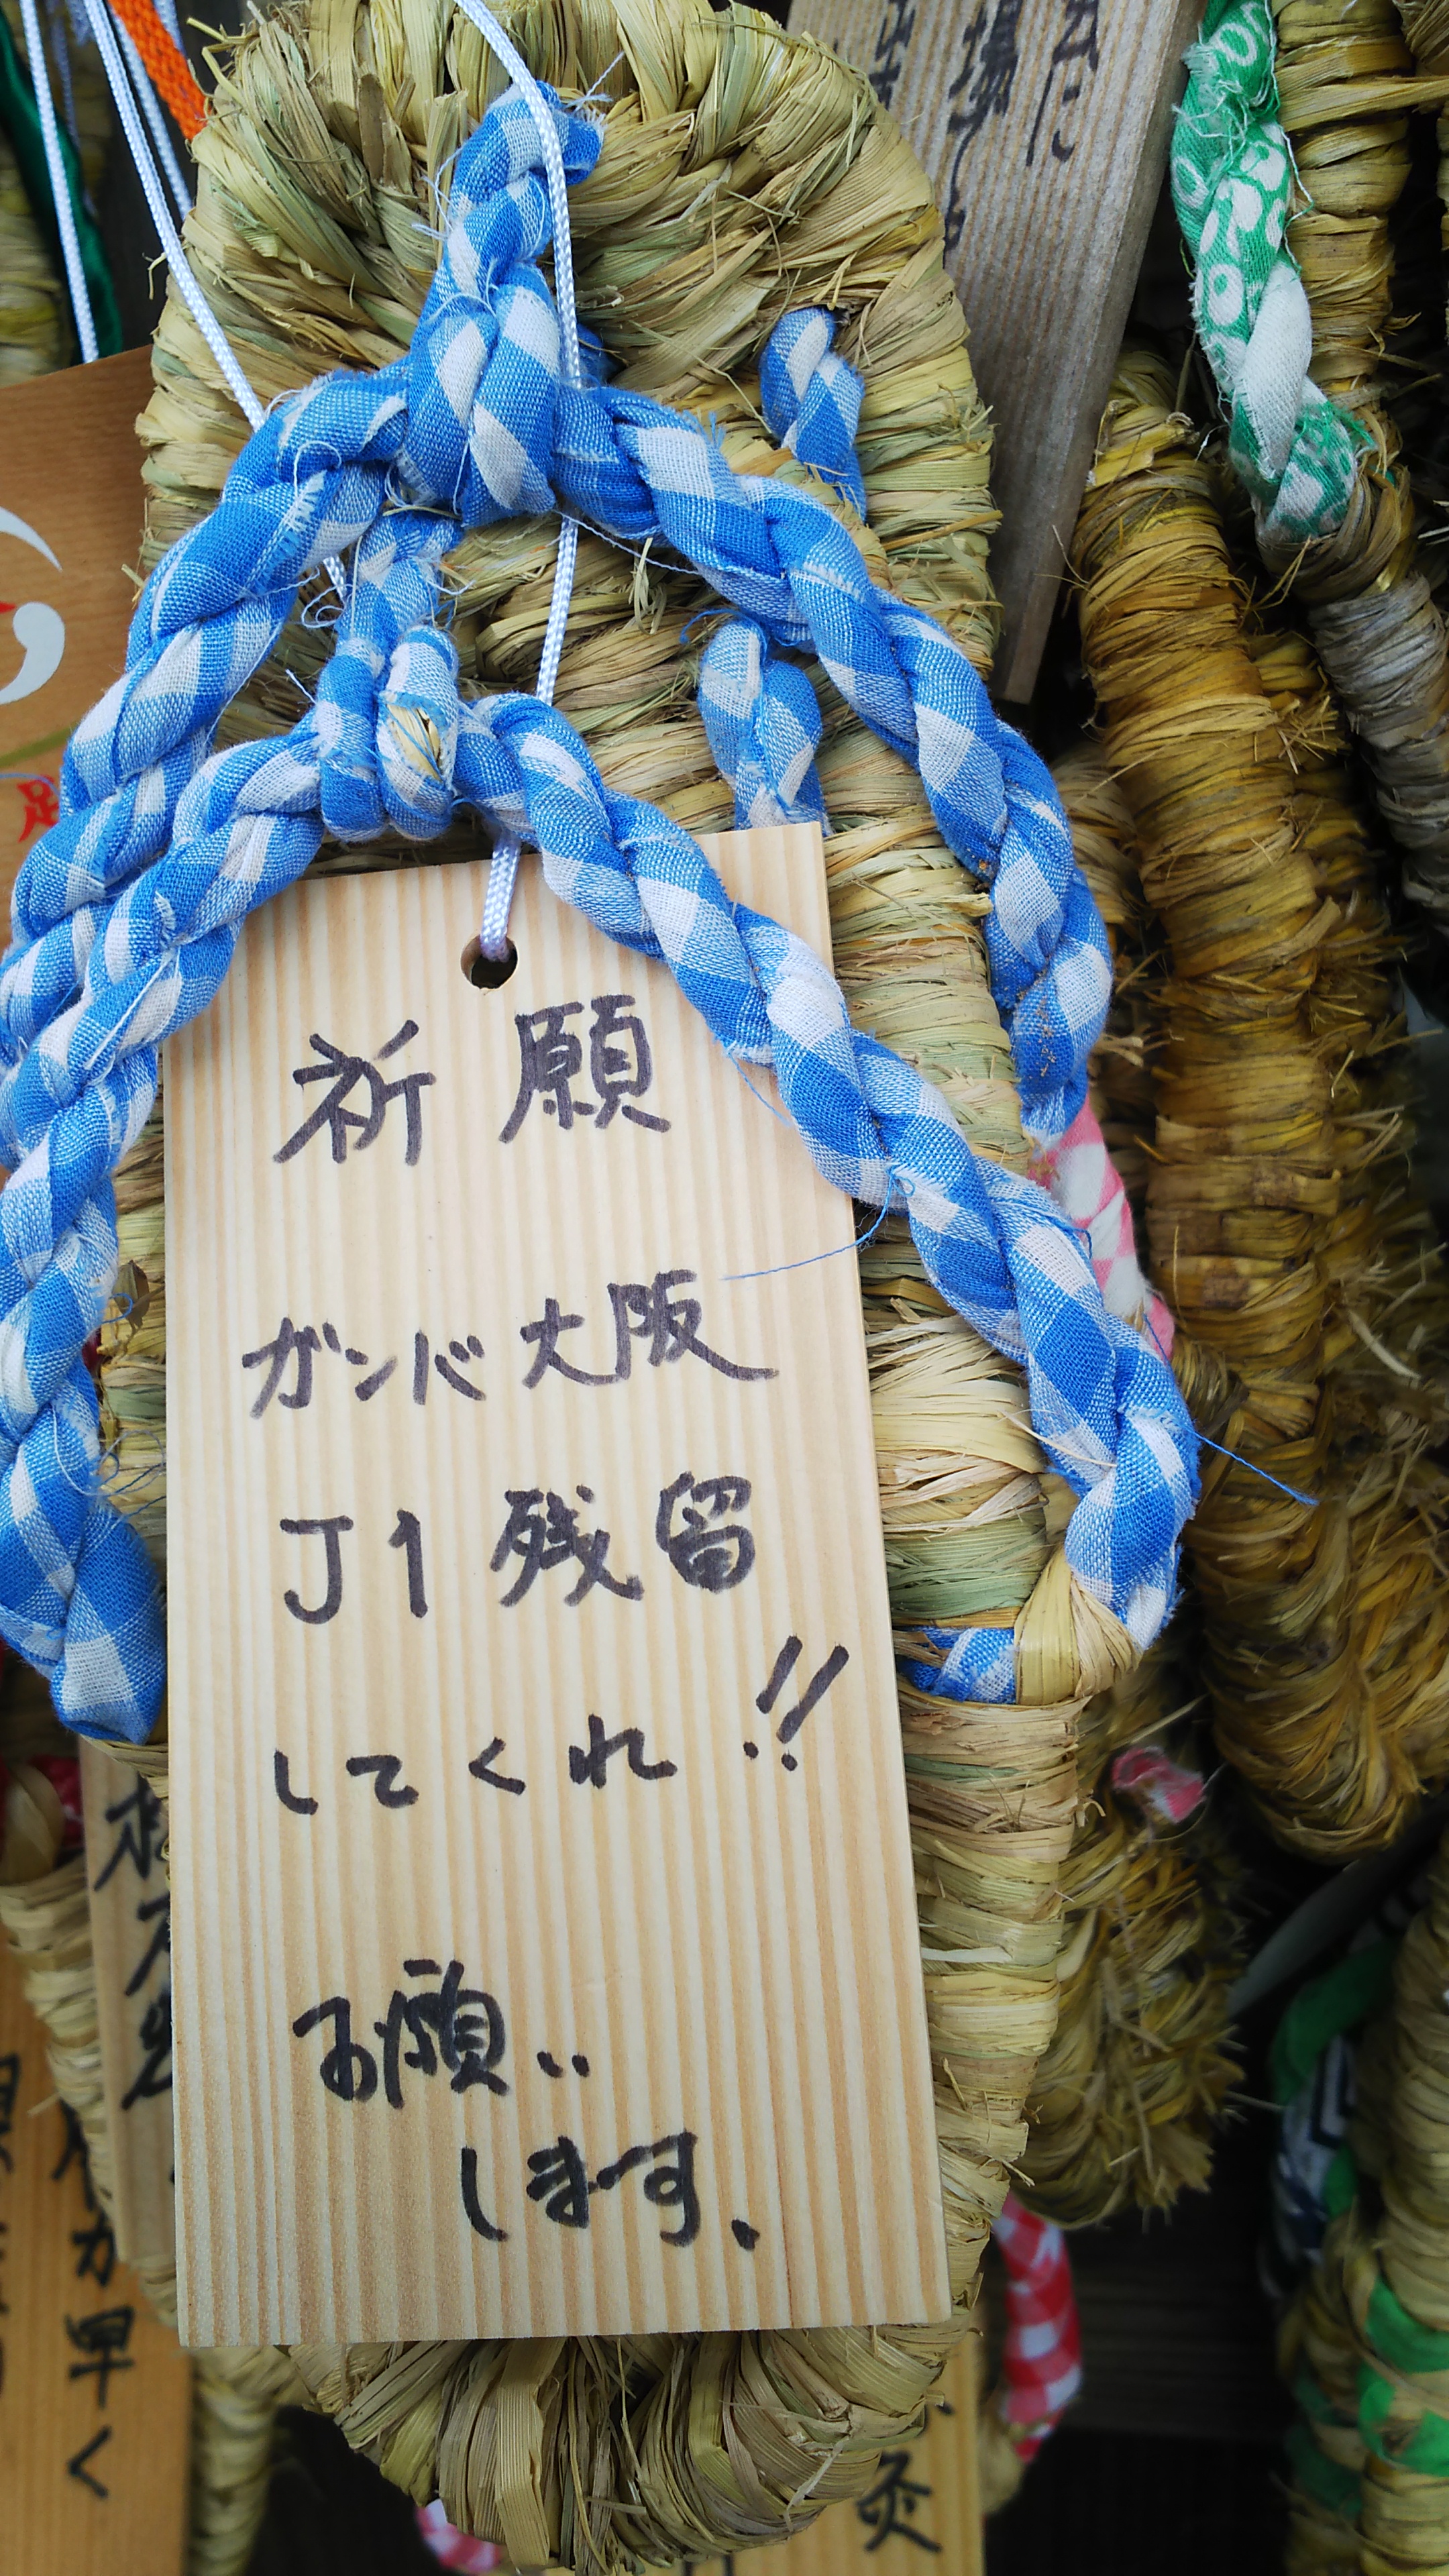 祈願
ガンバ大阪
J1残留
してくれ!!
お願い
します.
が早く